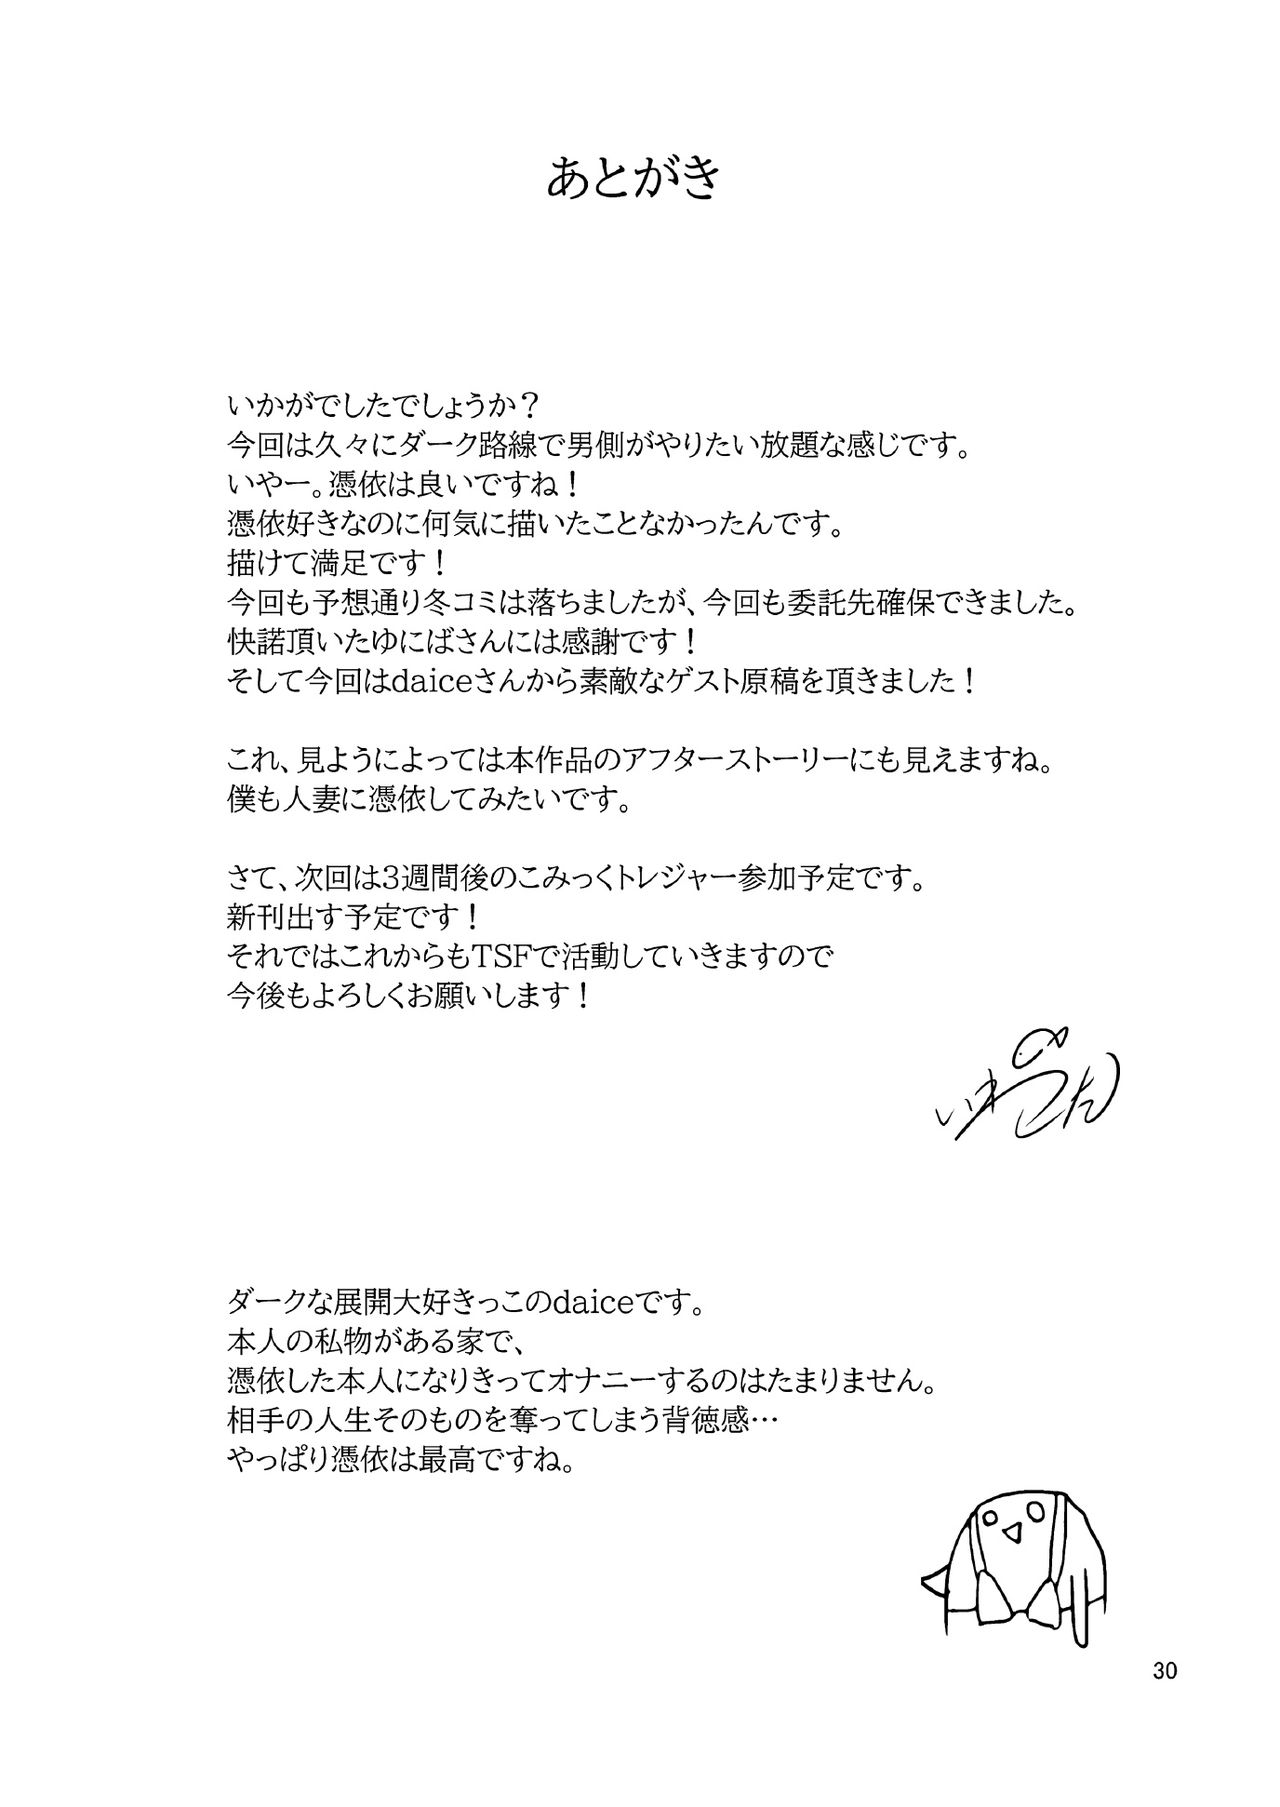 あとがき
いかがでしたでしょうか？
今回は久々にダーク路線で男側がやりたい放題な感じです。
いやー。憑依は良いですね！
憑依好きなのに何気に描いたことなかったんです。
描けて満足です！
今回も予想通り冬コミは落ちましたが、今回も委託先確保できました。
快諾頂いたゆにばさんには感謝です！
そして今回はdaiceさんから素敵なゲスト原稿を頂きました！
これ、見ようによっては本作品のアフターストーリーにも見えますね。
僕も人妻に憑依してみたいです。
さて、次回は3週間後のこみっくトレジャー参加予定です。
新刊出す予定です！
それではこれからもTSFで活動していきますので
今後もよろしくお願いします！
ダークな展開大好きっこのdaiceです。
本人の私物がある家で、
憑依した本人になりきってオナニーするのはたまりません。
相手の人生そのものを奪ってしまう背徳感…
やっぱり憑依は最高ですね。
30